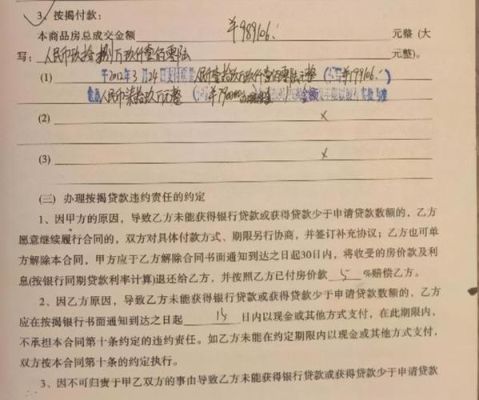 3、按揭付款：
本商品房总成交金额 ￥989106. 元整（大
写：人民币玖拾捌万玖仟壹佰零陆 元整）。
(1) 于2012年3月24日支付 人民币壹拾玖万玖仟壹佰零陆元整（小写￥199106.）
人民币柒拾玖万元整
(2) ×
(3) ×
(三) 办理按揭贷款违约责任的约定
1、因甲方的原因，导致乙方未能获得银行贷款或获得贷款少于申请贷款数额的，乙方
愿意继续履行合同的，双方对具体付款方式、期限另行协商，并签订补充协议；乙方也可单
方解除本合同，甲方应于乙方解除合同书面通知到达之日起30日内，将收受的房价款及利
息(按银行同期贷款利率计算)退还给乙方，并按照乙方已付房价款 5 %赔偿乙方。
2、因乙方原因，导致乙方未能获得银行贷款或获得贷款少于申请贷款数额的，乙方
应在按揭银行书面通知到达之日起 15 日内以现金或其他方式支付，在此期限内，
不承担本合同第十条约定的违约责任。如乙方未能在约定期限内以现金或其他方式支付，
双方按本合同第十条的约定执行。
3、因不可归责于甲乙双方的事由导致乙方未能获得银行贷款或获得贷款少于申请贷款